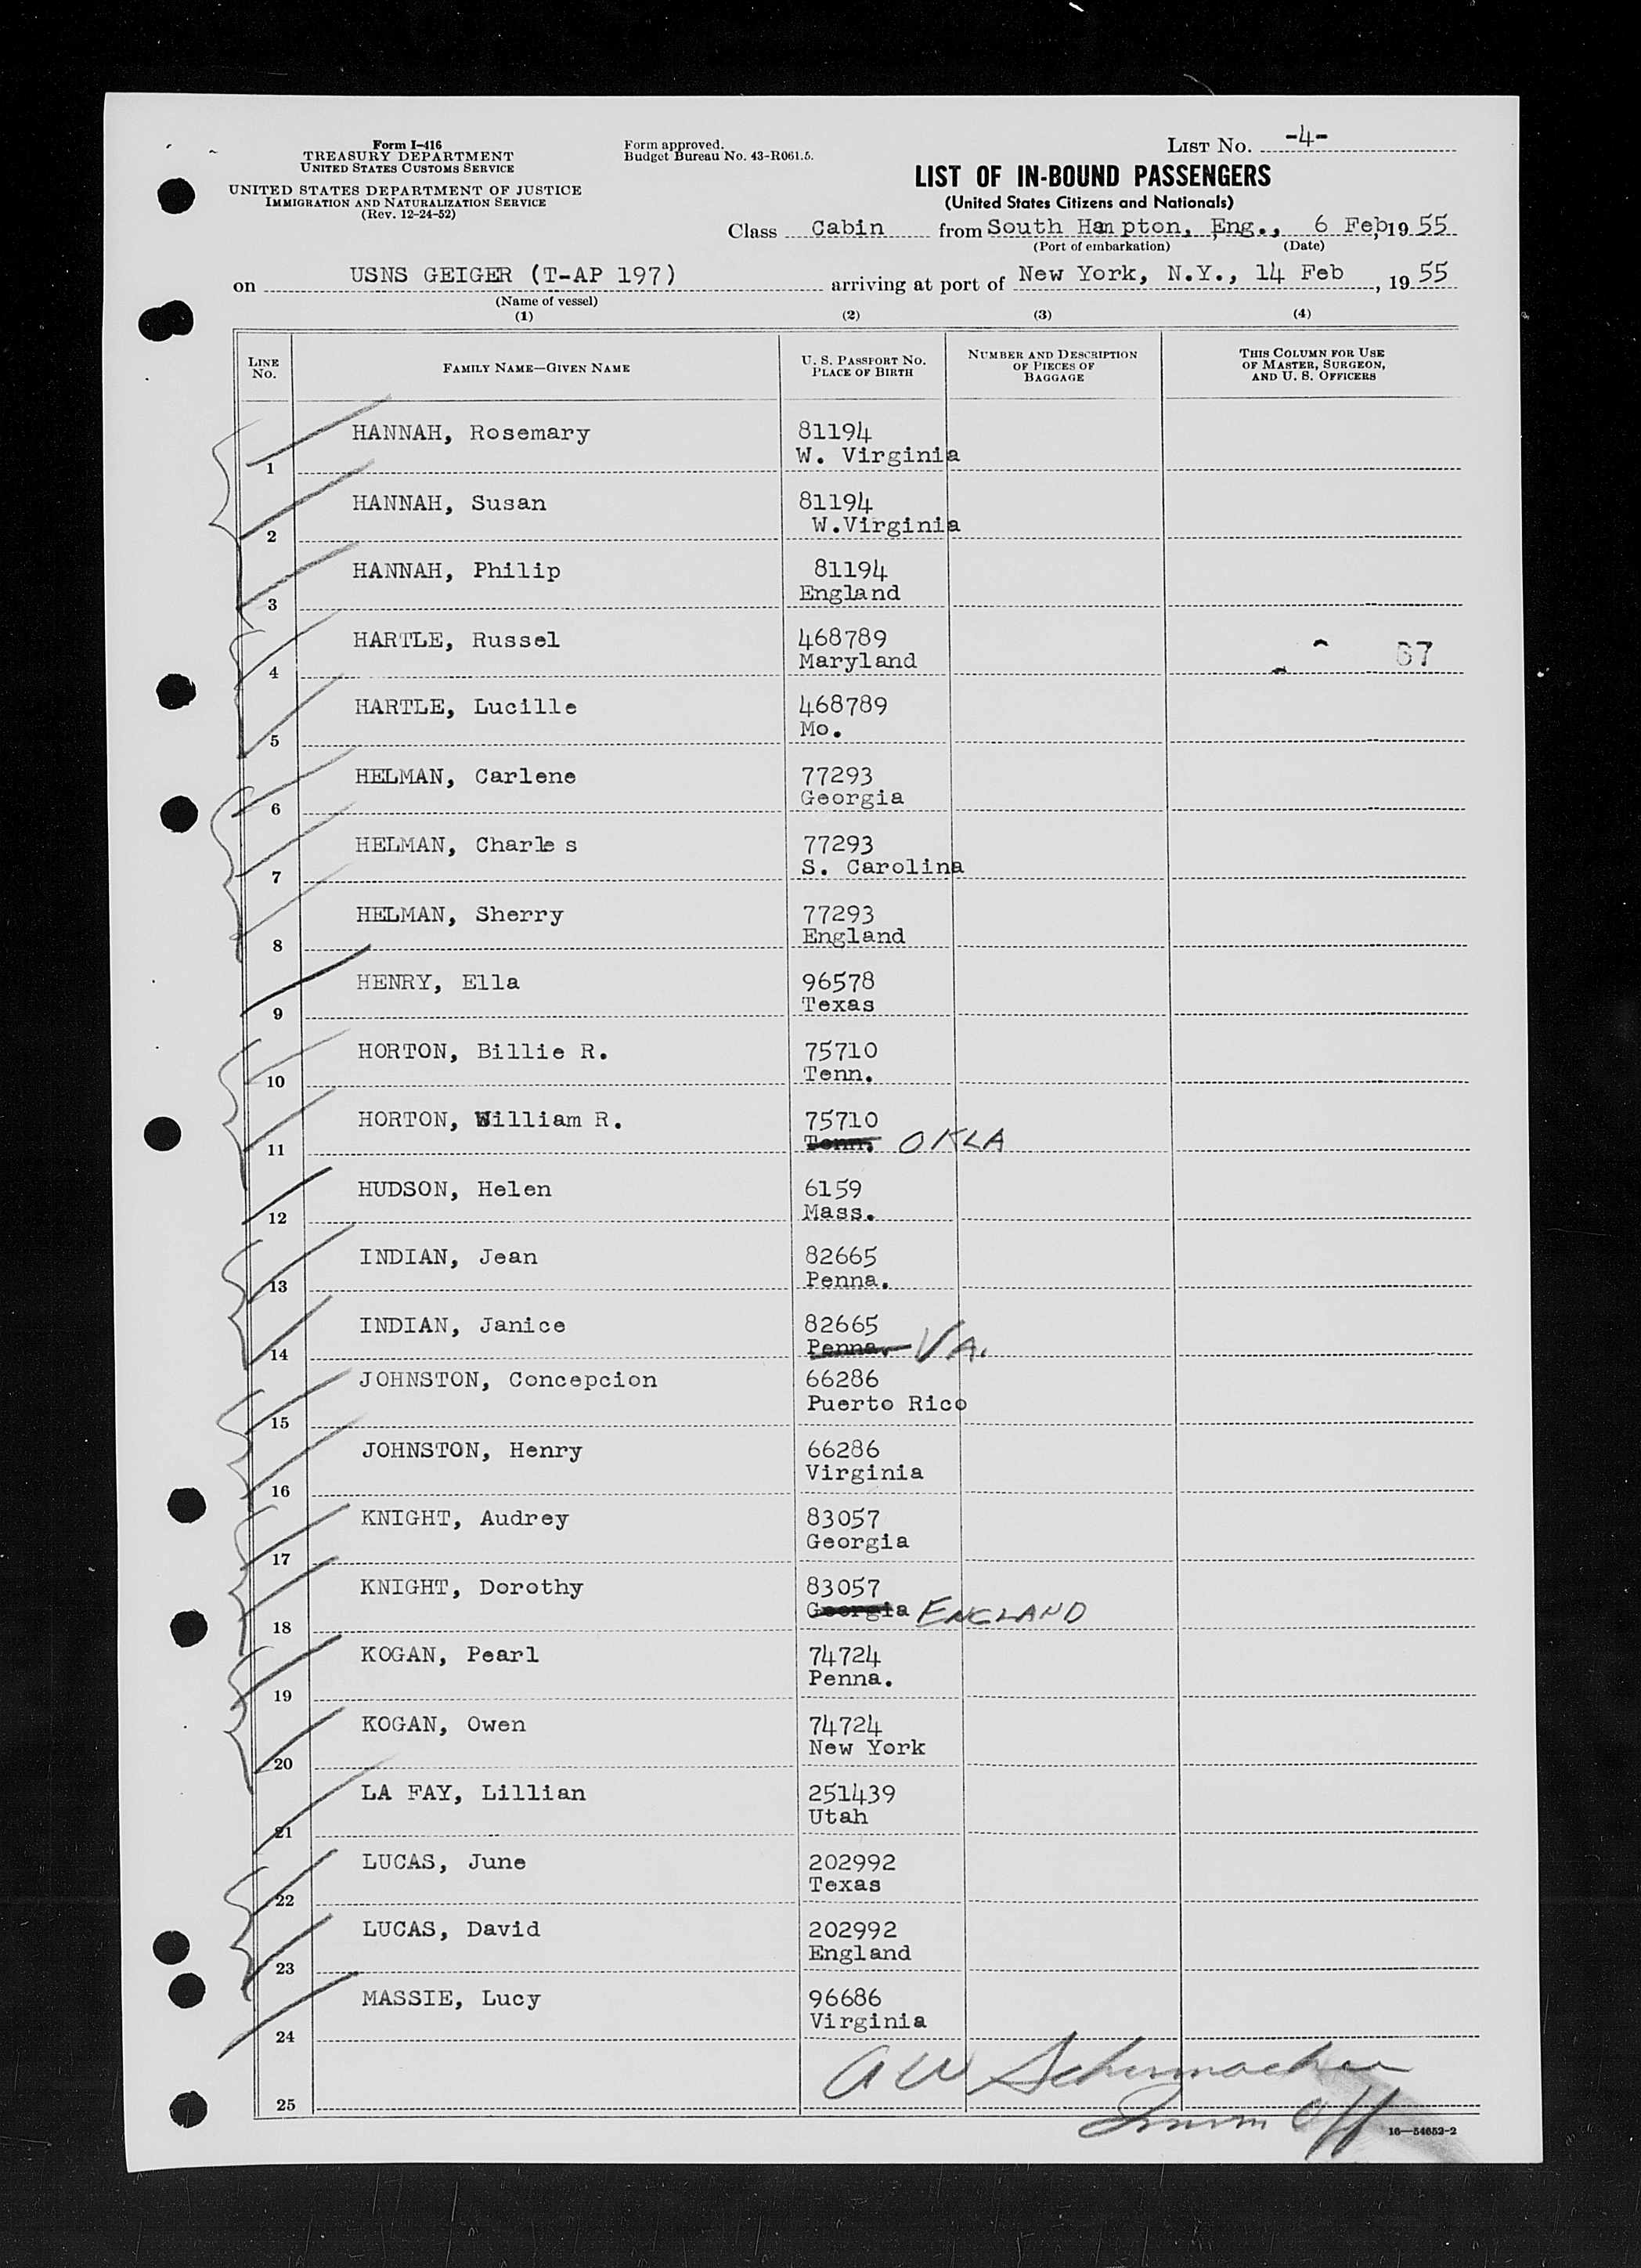 Form I-416
TREASURY DEPARTMENT
UNITED STATES CUSTOMS SERVICE
UNITED STATES DEPARTMENT OF JUSTICE
IMMIGRATION AND NATURALIZATION SERVICE
(Rev. 12-24-52)
Form approved.
Budget Bureau No. 43-R061.5.
LIST NO. -4-
LIST OF IN-BOUND PASSENGERS
(United States Citizens and Nationals)
Class Cabin from South Ham pton, Eng., 6 Feb, 19 55
(Port of embarkation) (Date)
on USNS GEIGER (T-AP 197) arriving at port of New York, N.Y., 14 Feb, 19 55
(Name of vessel)
(1) (2) (3) (4)
LINE NO. FAMILY NAME—GIVEN NAME U. S. PASSPORT NO. PLACE OF BIRTH NUMBER AND DESCRIPTION OF PIECES OF BAGGAGE THIS COLUMN FOR USE OF MASTER, SURGEON, AND U. S. OFFICERS
HANNAH, Rosemary 81194
1 W. Virginia
HANNAH, Susan 81194
2 W.Virginia
HANNAH, Philip 81194
3 England
HARTLE, Russel 468789 67
4 Maryland
HARTLE, Lucille 468789
5 Mo.
HELMAN, Carlene 77293
6 Georgia
HELMAN, Charle s 77293
7 S. Carolina
HELMAN, Sherry 77293
8 England
HENRY, Ella 96578
9 Texas
HORTON, Billie R. 75710
10 Tenn.
HORTON, William R. 75710
11 Tenn. OKLA
HUDSON, Helen 6159
12 Mass.
INDIAN, Jean 82665
13 Penna.
INDIAN, Janice 82665
14 Penna. VA.
JOHNSTON, Concepcion 66286
15 Puerto Rico
JOHNSTON, Henry 66286
16 Virginia
KNIGHT, Audrey 83057
17 Georgia
KNIGHT, Dorothy 83057
18 Georgia ENGLAND
KOGAN, Pearl 74724
19 Penna.
KOGAN, Owen 74724
20 New York
LA FAY, Lillian 251439
21 Utah
LUCAS, June 202992
22 Texas
LUCAS, David 202992
23 England
MASSIE, Lucy 96686
24 Virginia
AW Schumacher
25
Imm Off
16—54652-2